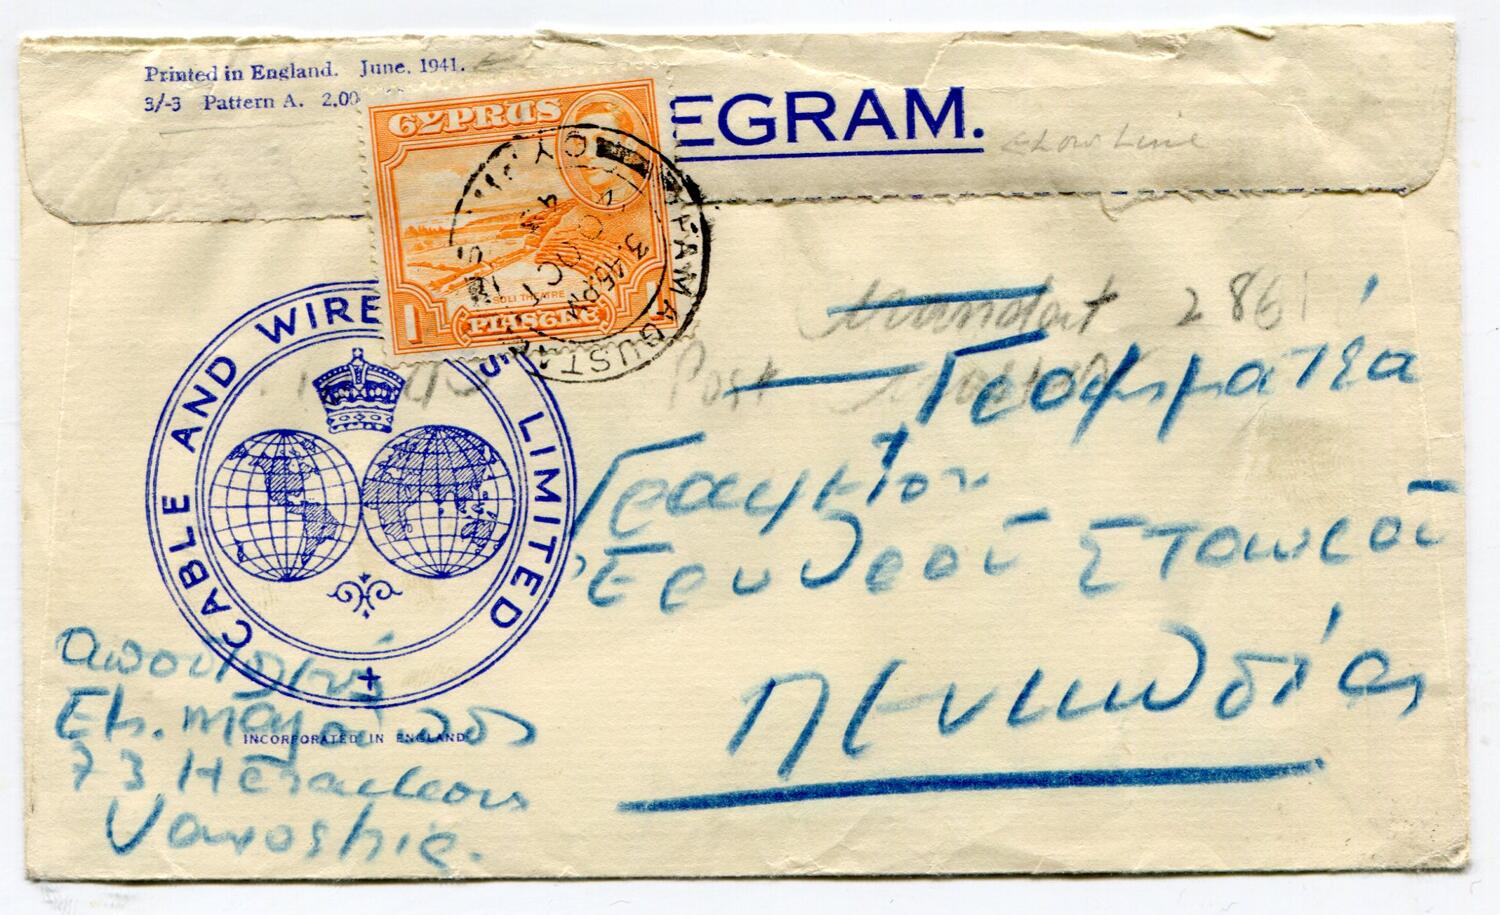 Printed in England. June, 1941.
3/-3 Pattern A. 2,00
EGRAM.
CYPRUS
SOLI THEATRE
1 PIASTRE 1
FAMAGUSTA
3.45 PM
CABLE AND WIRE S LIMITED
INCORPORATED IN ENGLAND
Mandat 286
Post
Γραμματέα
Γραφεῖον
Ἐρυθροῦ Σταυροῦ
Λευκωσίας
73 Heracleous
Varoshia.